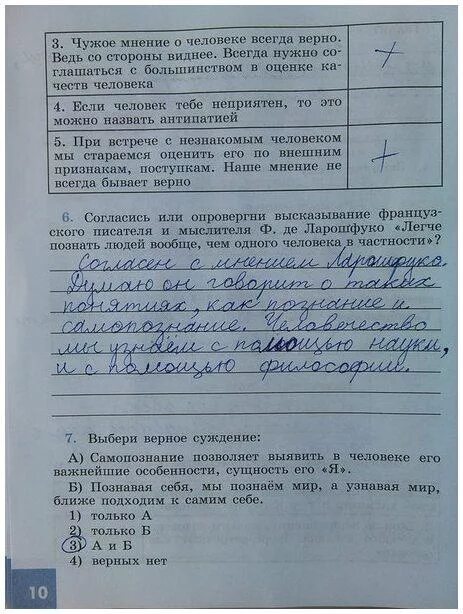 3. Чужое мнение о человеке всегда верно.
Ведь со стороны виднее. Всегда нужно со-
глашаться с большинством в оценке ка-
честв человека
+
4. Если человек тебе неприятен, то это
можно назвать антипатией
5. При встрече с незнакомым человеком
мы стараемся оценить его по внешним
признакам, поступкам. Наше мнение не
всегда бывает верно
+
6. Согласись или опровергни высказывание француз-
ского писателя и мыслителя Ф. де Ларошфуко «Легче
познать людей вообще, чем одного человека в частности»?
Согласен с мнением Ларошфуко.
Думаю он говорит о таких
понятиях, как познание и
самопознание. Человечество
мы узнаём с помощью науки,
и с помощью философии.
7. Выбери верное суждение:
А) Самопознание позволяет выявить в человеке его
важнейшие особенности, сущность его «Я».
Б) Познавая себя, мы познаём мир, а узнавая мир,
ближе подходим к самим себе.
1) только А
2) только Б
3) А и Б
4) верных нет
10